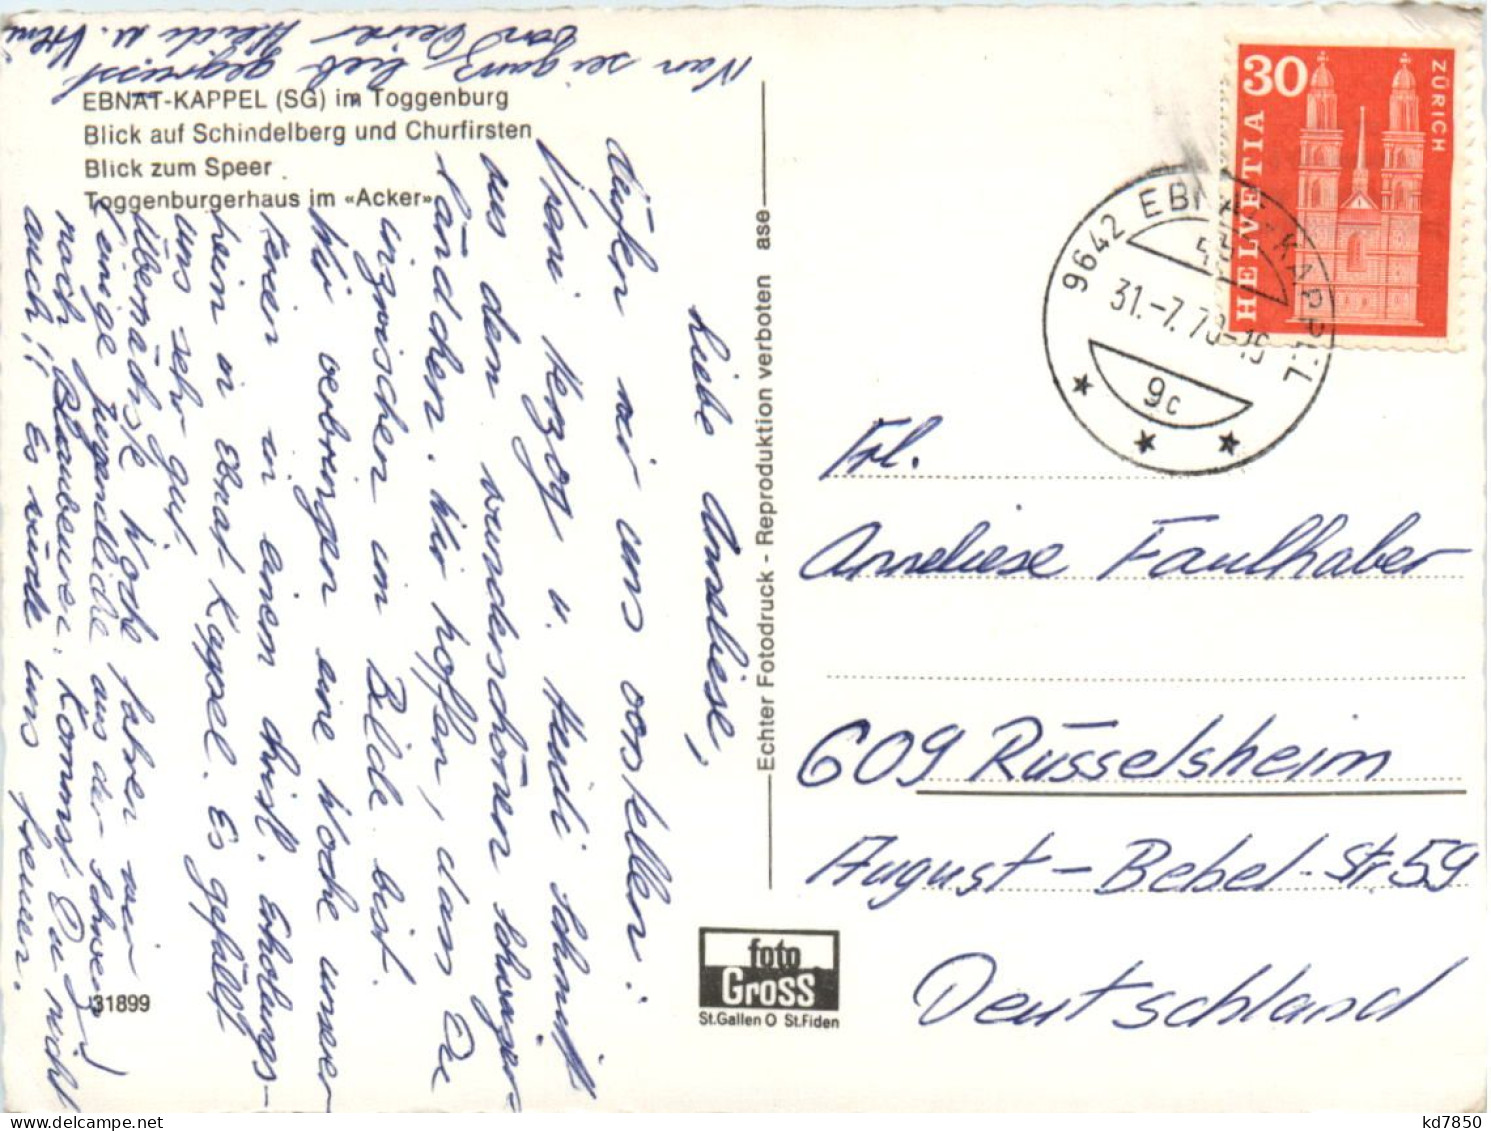 EBNAT-KAPPEL (SG) im Toggenburg
Blick auf Schindelberg und Churfirsten
Blick zum Speer
Toggenburgerhaus im «Acker»
Liebe Anneliese,
dürfen wir uns vorstellen:
Vreni Herzog u. Heidi Schmitt
aus dem wunderschönen Schweizer-
ländchen. Wir hoffen, dass Du
inzwischen im Bilde bist.
Wir verbringen eine Woche unserer
Ferien in einem christl. Erholungs-
heim in Ebnat Kappel. Es gefällt
uns sehr gut.
Übernächste Woche fahren wir
(einige Jugendliche aus der Schweiz)
nach Blaubeuren. Kommst Du nicht
auch!! Es würde uns freuen.
Nun sei ganz lieb gegrüsst
von Deiner Heidi u. Vreni
Echter Fotodruck - Reproduktion verboten ase
31899
foto
Gross
St.Gallen O St.Fiden
30
HELVETIA
ZÜRICH
9642 EBNAT-KAPPEL
31.-7.70-
9c
Frl.
Anneliese Faulhaber
609 Rüsselsheim
August-Bebel-Str 59
Deutschland
kd7850